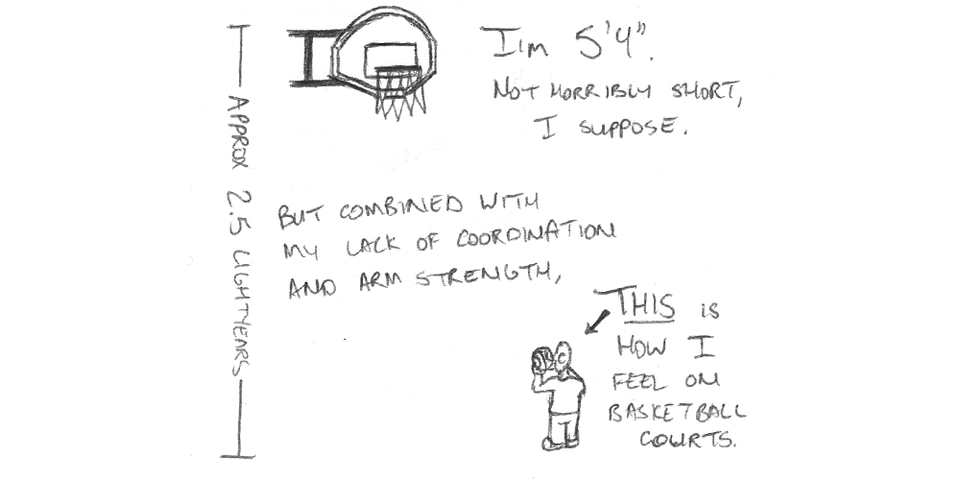 I'm 5'4".
NOT HORRIBLY SHORT,
I SUPPOSE.
APPROX 2.5 LIGHTYEARS
BUT COMBINED WITH
MY LACK OF COORDINATION
AND ARM STRENGTH,
THIS IS
HOW I
FEEL ON
BASKETBALL
COURTS.